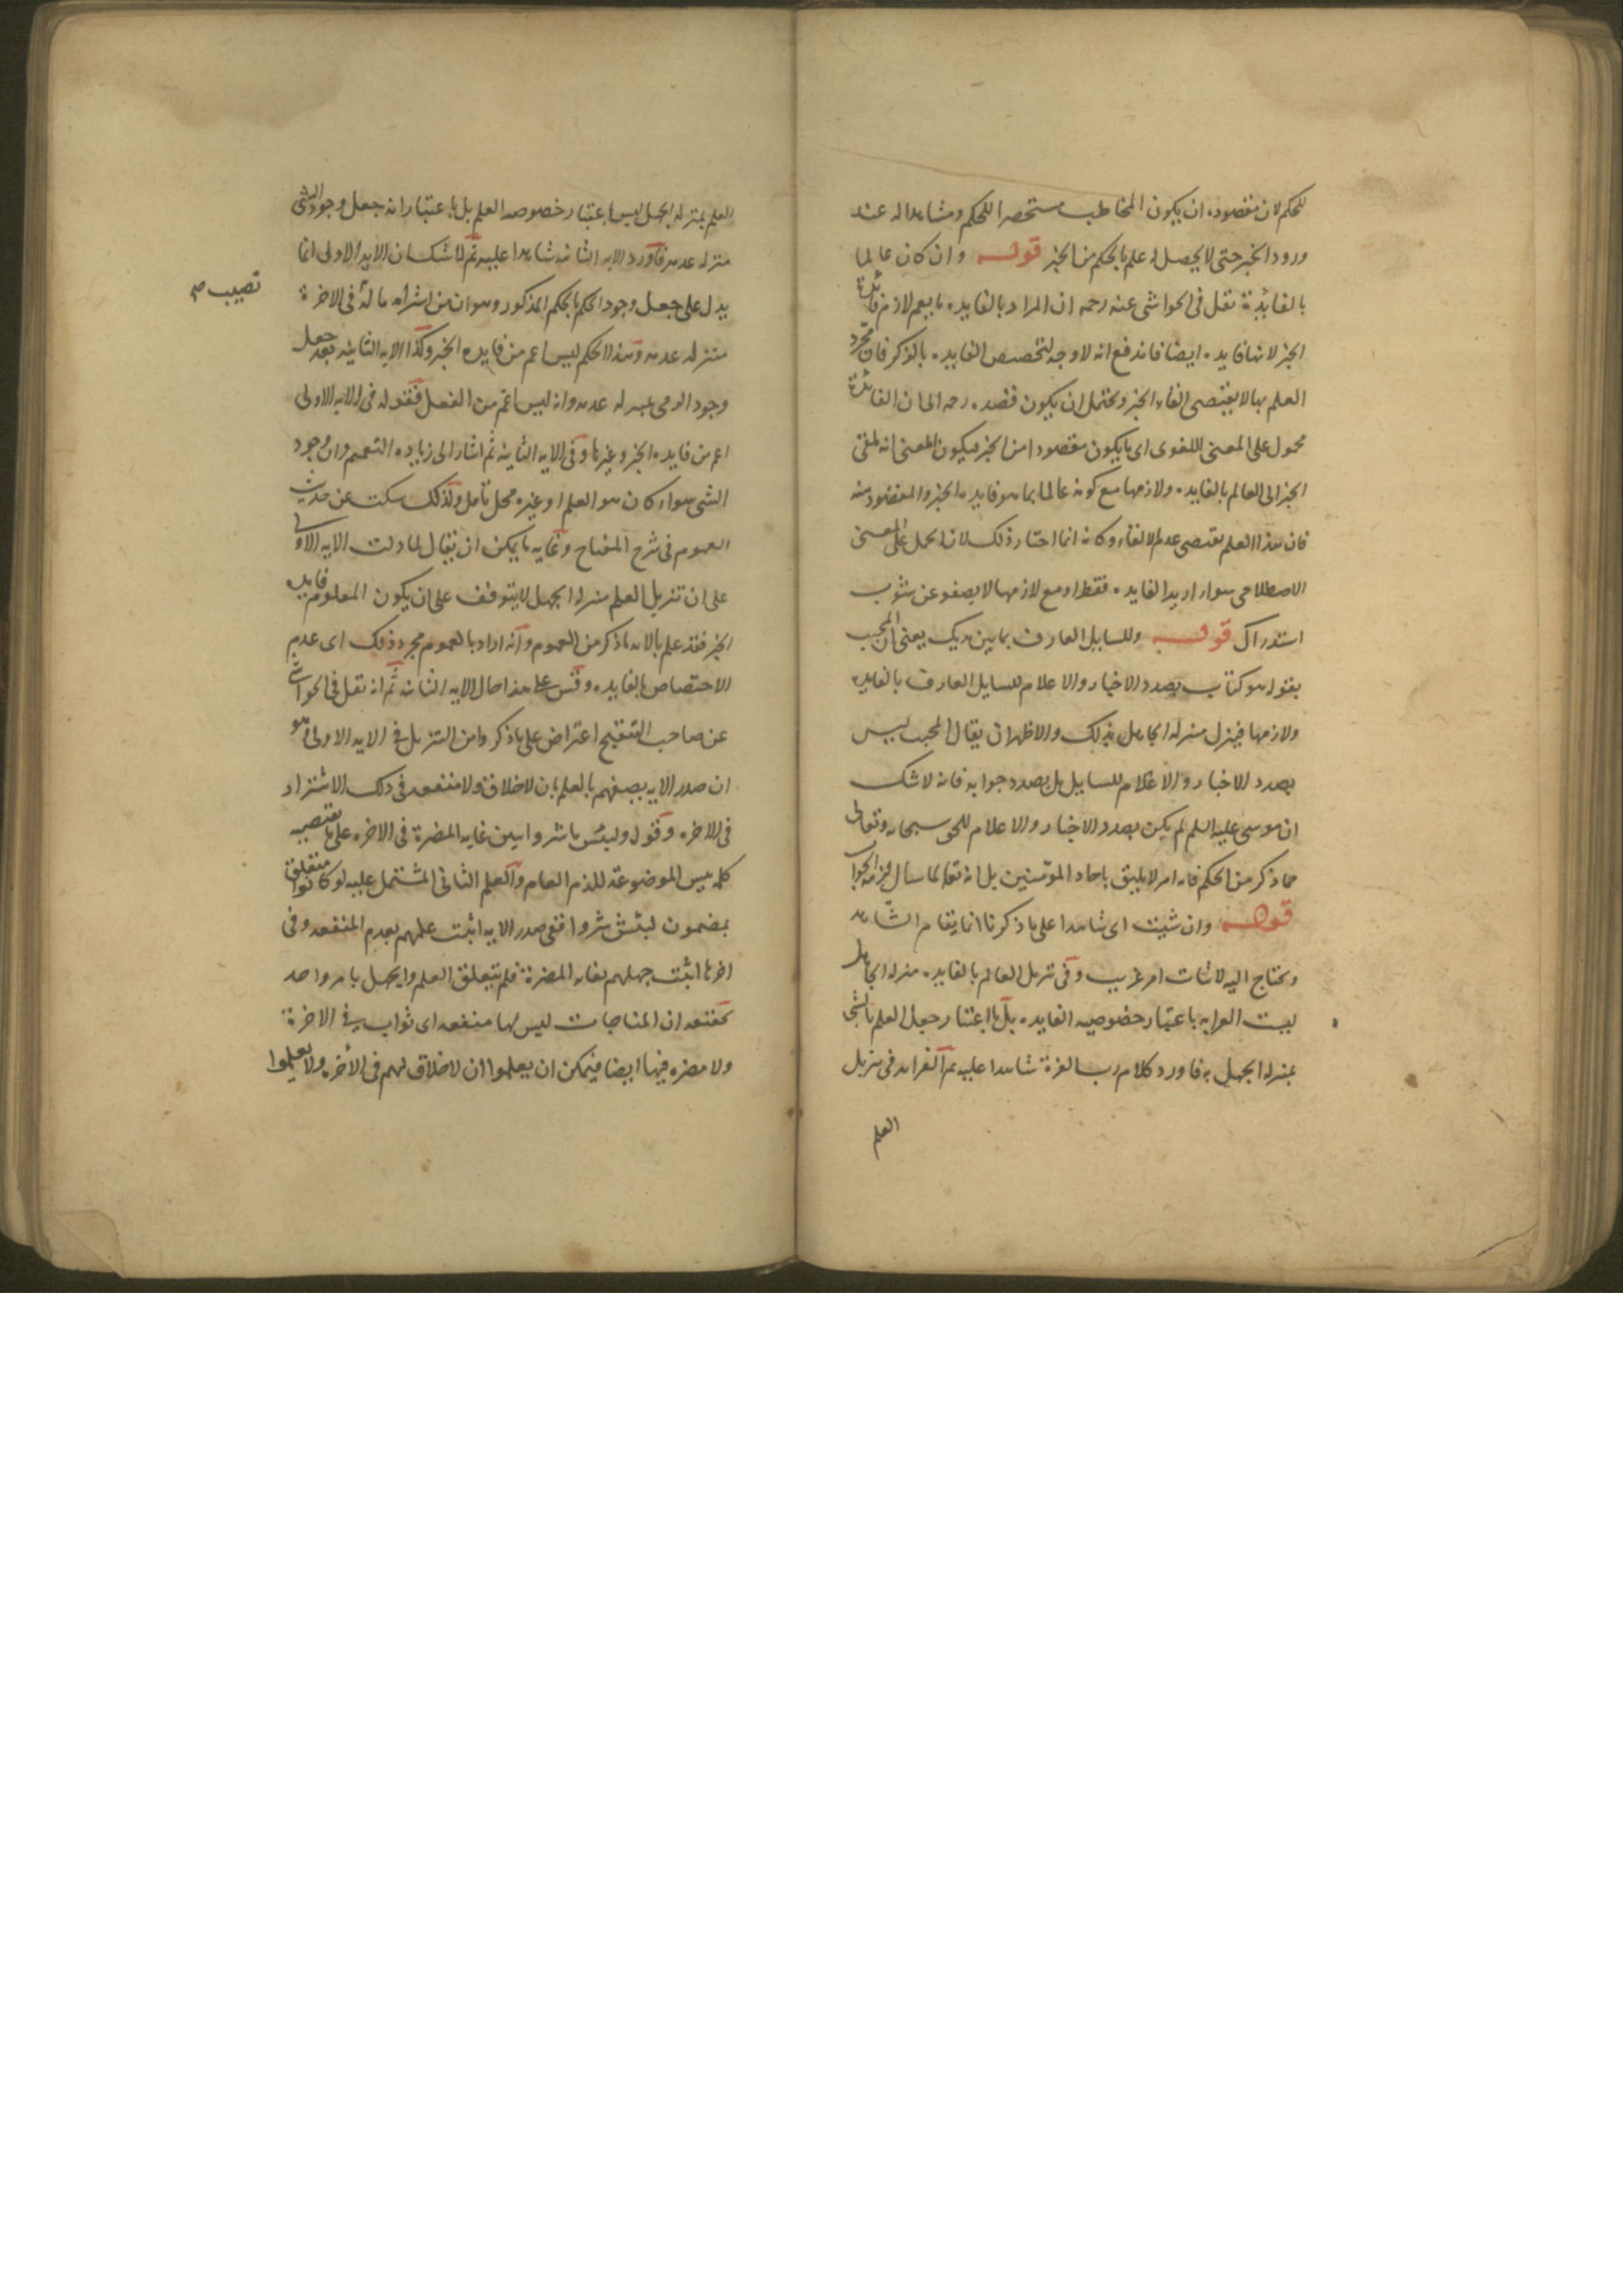 للحكم لان مقصوده ان يكون المخاطب مستحضرا للحكم ومشاهدا له عند
ورود الخبر حتى لا يحصل له علم بالحكم من الخبر قوله وان كان عالما
بالفائدة نقل في الحواشي عنه رحمه ان المراد بالفايده ما يعم لازم فائدة
الخبر لانها فايده ايضا فاندفع انه لا وجه لتخصيص الفايده بالذكر فان مجرد
العلم بها لا يقتضي القاء الخبر ويحتمل ان يكون قصده رحمه الى ان الفائدة
محمول على المعنى اللغوى اى ما يكون مقصودا من الخبر فيكون المعنى انه يلقى
الخبر الى العالم بالفايده ولازمها مع كونه عالما بما هو فايده الخبر والمقصود منه
فان هذا العلم يقتضي عدم الالقاء وكانه انما اختار ذلك لان الحمل على المعنى
الاصطلاحى سواء اريد الفايده فقط او مع لازمها لا يصفو عن شوب
استدراك قوله وللسايل العارف بما بين يديك يعنى ان المجيب
بقوله هو كتاب بصدد الاخبار والاعلام للسايل العارف بالفايده
ولازمها فينزل منزله الجاهل بذلك والاظهر ان يقال المجيب ليس
بصدد الاخبار والاعلام للسايل بل بصدد جوابه فانه لا شك
ان موسى عليه السلم لم يكن بصدد الاخبار والاعلام للحق سبحانه وتعالى
مما ذكر من الحكم فانه امر لا يليق باحاد المؤمنين بل انه تعالى لما سال لزمه الجواب
قوله وان شئت اى شاهدا على ما ذكرنا انما يقام الشاهد
ويحتاج اليه لاثبات امر غريب وفى تنزيل العالم بالفايده منزله الجاهل
ليست الغرابه باعتبار خصوصيه الفايده بل باعتبار جعل العلم بالشئ
بمنزله الجهل به فاورد كلام رب العزة شاهدا عليه ثم الغرابه في تنزيل
العلم
العلم بمنزله الجهل ليس باعتبار خصوصه العلم بل باعتبار انه جعل وجود الشئ
منزله عدمه فاورد الايه الثانيه شاهدا عليه ثم لا شك ان الايه الاولى انما
يدل على جعل وجود الحكم بالحكم المذكور وهو ان من اشتراه ما له فى الاخرة
نصيب صح
منزله عدمه وهذا الحكم ليس اعم من فايده الخبر وكذا الايه الثانيه بعد جعل
وجود الرمى بمنزله عدمه وانه ليس اعم من الفعل فقوله فى الايه الاولى
اعم من فايده الخبر وغيرها وفى الايه الثانيه ثم اشار الى زياده التعميم وان وجود
الشى سواء كان هو العلم او غيره محل تأمل ولذلك سكت عن حديث
العموم فى شرح المفتاح وغايه ما يمكن ان يقال لما دلت الايه الاولى
على ان تنزيل العلم منزله الجهل لا يتوقف على ان يكون المعلوم فايده
الخبر فقد علم بالايه ما ذكر من العموم وانه اراد بالعموم مجرد ذلك اى عدم
الاختصاص بالفايده وقس على هذا حال الايه الثانيه ثم انه نقل فى الحواشى
عن صاحب التنقيح اعتراض على ما ذكروا من التنزيل فى الايه الاولى وهو
ان صدر الايه يصفهم بالعلم بان لا خلاق ولا منفعه فى ذلك الاشتراء
فى الاخره وقوله ولبئس ما شروا يبين غايه المضرة فى الاخره على ما يقتضيه
كلمه بيس الموضوعة للذم العام والعلم الثانى المشتمل عليه لو كانوا متعلق
بمضمون لبئس شروا ففى صدر الايه اثبت علمهم بعدم المنفعه وفى
اخرها اثبت جهلهم بغايه المضرة فلم يتعلق العلم والجهل بامر واحد
كمعتقد ان المناجات ليس لها منفعه اى ثواب فى الاخرة
ولا مضره فيها ايضا فيمكن ان يعلموا ان لا خلاق لهم فى الاخره ولا يعلموا